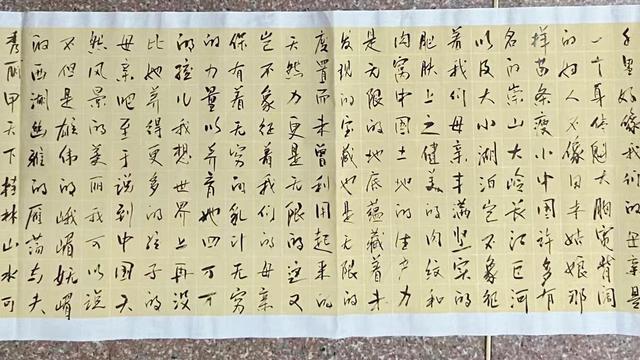 千里好像我们的母亲是
一个身体魁大胸宽背阔
的妇人不像日本姑娘那
样苗条瘦小中国许多有
名的崇山大岭长江巨河
以及大小湖泊岂不象征
着我们母亲丰满坚实的
肥肤上之健美的肉纹和
肉窝中国土地的生产力
是无限的地底蕴藏着未
发现的宝藏也是无限的
废置而未曾利用起来的
天然力更是无限的这又
岂不象征着我们的母亲
保有着无穷的乳汁无穷
的力量以养育她四万万
的孩儿我想世界上再没
比她养得更多的孩子的
母亲吧至于说到中国天
然风景的美丽我可以说
不但是雄伟的峨嵋妩媚
的西湖幽雅的雁荡与夫
秀丽甲天下桂林山水可